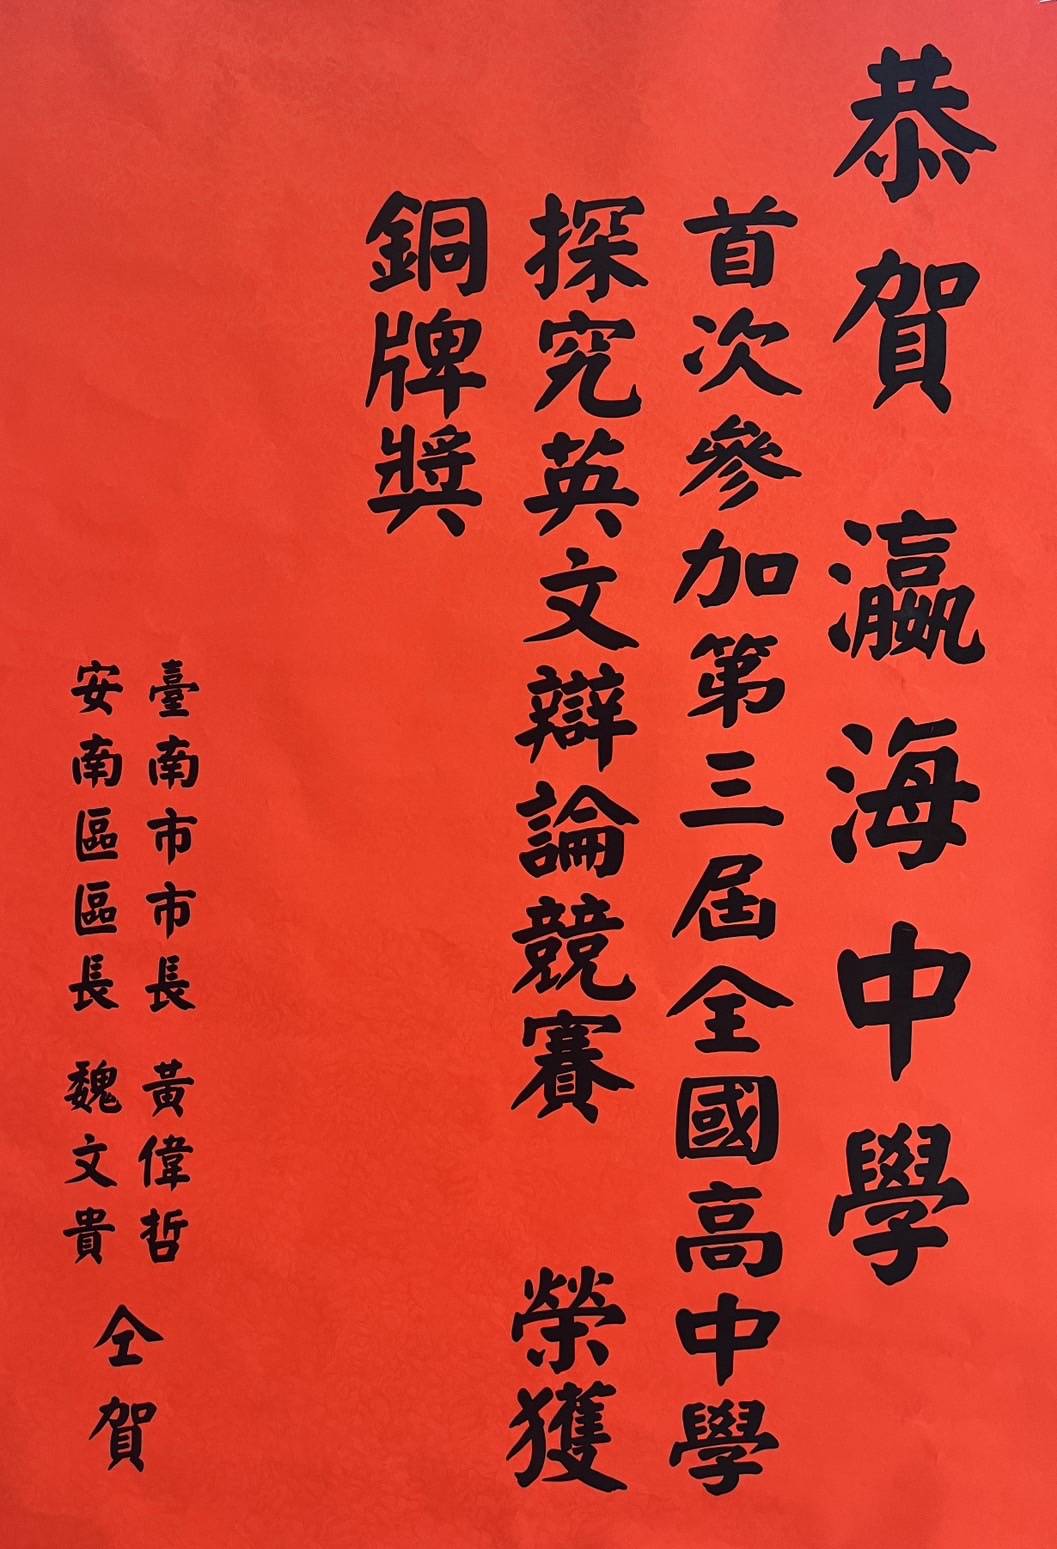 恭賀 瀛海中學
首次參加第三屆全國高中學
探究英文辯論競賽 榮獲
銅牌獎
臺南市市長 黃偉哲
安南區區長 魏文貴
仝賀